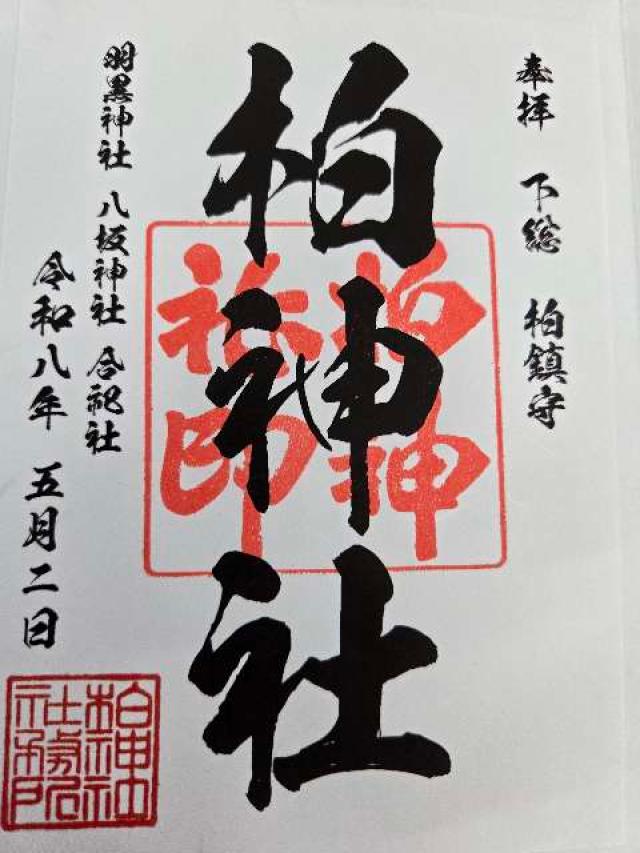 奉拝 下総 柏鎮守
柏神社
柏神
社印
羽黒神社 八坂神社 合祀社
令和八年 五月二日
柏神社
社務所